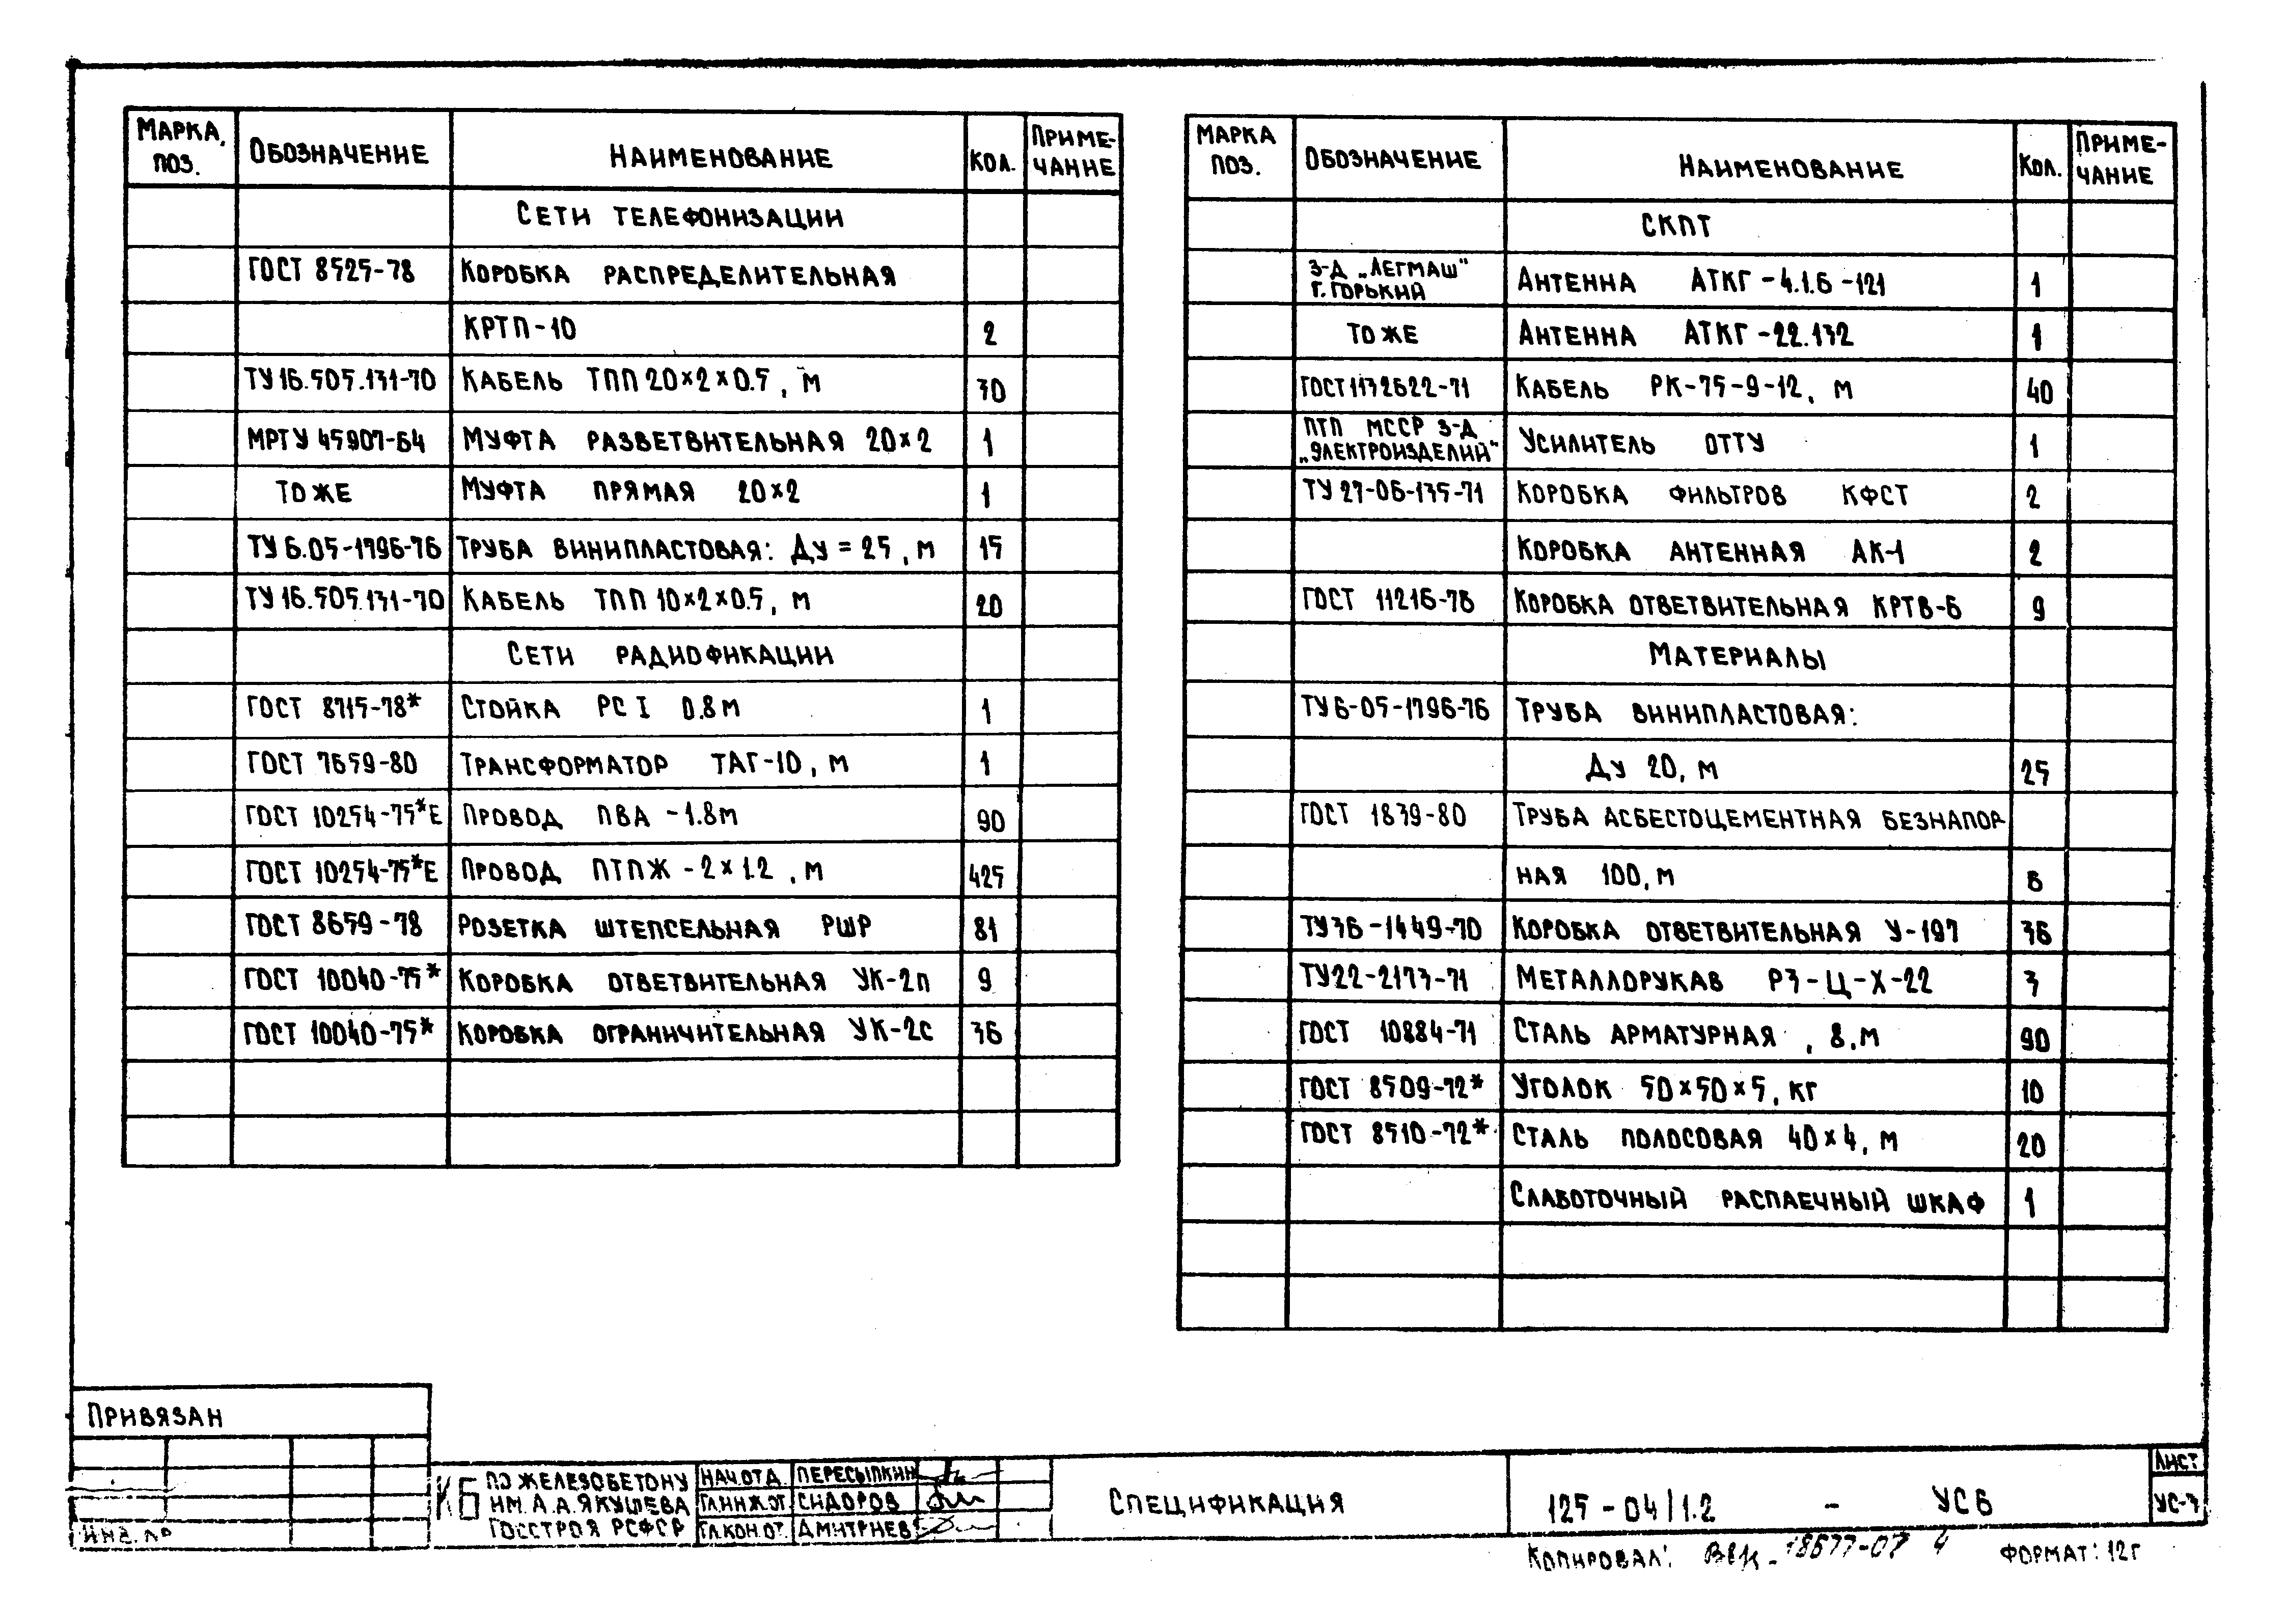 МАРКА, ПОЗ. ОБОЗНАЧЕНИЕ НАИМЕНОВАНИЕ КОЛ. ПРИМЕ-ЧАНИЕ
СЕТИ ТЕЛЕФОНИЗАЦИИ
ГОСТ 8525-78 КОРОБКА РАСПРЕДЕЛИТЕЛЬНАЯ
КРТП-10 2
ТУ 16.505.131-70 КАБЕЛЬ ТПП 20×2×0.5, М 30
МРТУ 45907-64 МУФТА РАЗВЕТВИТЕЛЬНАЯ 20×2 1
ТО ЖЕ МУФТА ПРЯМАЯ 20×2 1
ТУ 6.05-1796-76 ТРУБА ВИНИПЛАСТОВАЯ: ДУ = 25, М 15
ТУ 16.505.131-70 КАБЕЛЬ ТПП 10×2×0.5, М 20
СЕТИ РАДИОФИКАЦИИ
ГОСТ 8715-78* СТОЙКА РС I 0.8М 1
ГОСТ 7659-80 ТРАНСФОРМАТОР ТАГ-10, М 1
ГОСТ 10254-75*Е ПРОВОД ПВА -1.8М 90
ГОСТ 10254-75*Е ПРОВОД ПТПЖ - 2×1.2, М 425
ГОСТ 8659-78 РОЗЕТКА ШТЕПСЕЛЬНАЯ РШР 81
ГОСТ 10040-75* КОРОБКА ОТВЕТВИТЕЛЬНАЯ УК-2П 9
ГОСТ 10040-75* КОРОБКА ОГРАНИЧИТЕЛЬНАЯ УК-2С 36
МАРКА ПОЗ. ОБОЗНАЧЕНИЕ НАИМЕНОВАНИЕ КОЛ. ПРИМЕ-ЧАНИЕ
СКПТ
З-Д „ЛЕГМАШ" Г. ГОРЬКИЙ АНТЕННА АТКГ-4.1.6-121 1
ТО ЖЕ АНТЕННА АТКГ-22.132 1
ГОСТ 1132622-71 КАБЕЛЬ РК-75-9-12, М 40
ПТП МССР З-Д „ЭЛЕКТРОИЗДЕЛИЙ" УСИЛИТЕЛЬ ОТТУ 1
ТУ 27-06-135-71 КОРОБКА ФИЛЬТРОВ КФСТ 2
КОРОБКА АНТЕННАЯ АК-1 2
ГОСТ 11216-76 КОРОБКА ОТВЕТВИТЕЛЬНАЯ КРТВ-6 9
МАТЕРИАЛЫ
ТУ 6-05-1796-76 ТРУБА ВИНИПЛАСТОВАЯ:
ДУ 20, М 25
ГОСТ 1839-80 ТРУБА АСБЕСТОЦЕМЕНТНАЯ БЕЗНАПОР
НАЯ 100, М 6
ТУ36-1449-70 КОРОБКА ОТВЕТВИТЕЛЬНАЯ У-197 36
ТУ22-2173-71 МЕТАЛЛОРУКАВ РЗ-Ц-Х-22 3
ГОСТ 10884-71 СТАЛЬ АРМАТУРНАЯ , 8, М 90
ГОСТ 8509-72* УГОЛОК 50×50×5, КГ 10
ГОСТ 8510-72* СТАЛЬ ПОЛОСОВАЯ 40×4, М 20
СЛАБОТОЧНЫЙ РАСПАЕЧНЫЙ ШКАФ 1
ПРИВЯЗАН
ИНВ. №
КБ ПО ЖЕЛЕЗОБЕТОНУ
ИМ. А.А.ЯКУШЕВА
ГОССТРОЯ РСФСР
НАЧ.ОТД. ПЕРЕСЫПКИН
ГЛ.ИНЖ.ОТ. СИДОРОВ
ГЛ.КОН.ОТ. ДМИТРИЕВ
СПЕЦИФИКАЦИЯ
125-04/1.2 - УС6
ЛИСТ
УС-3
КОПИРОВАЛ: 18677-07 4 ФОРМАТ: 12Г